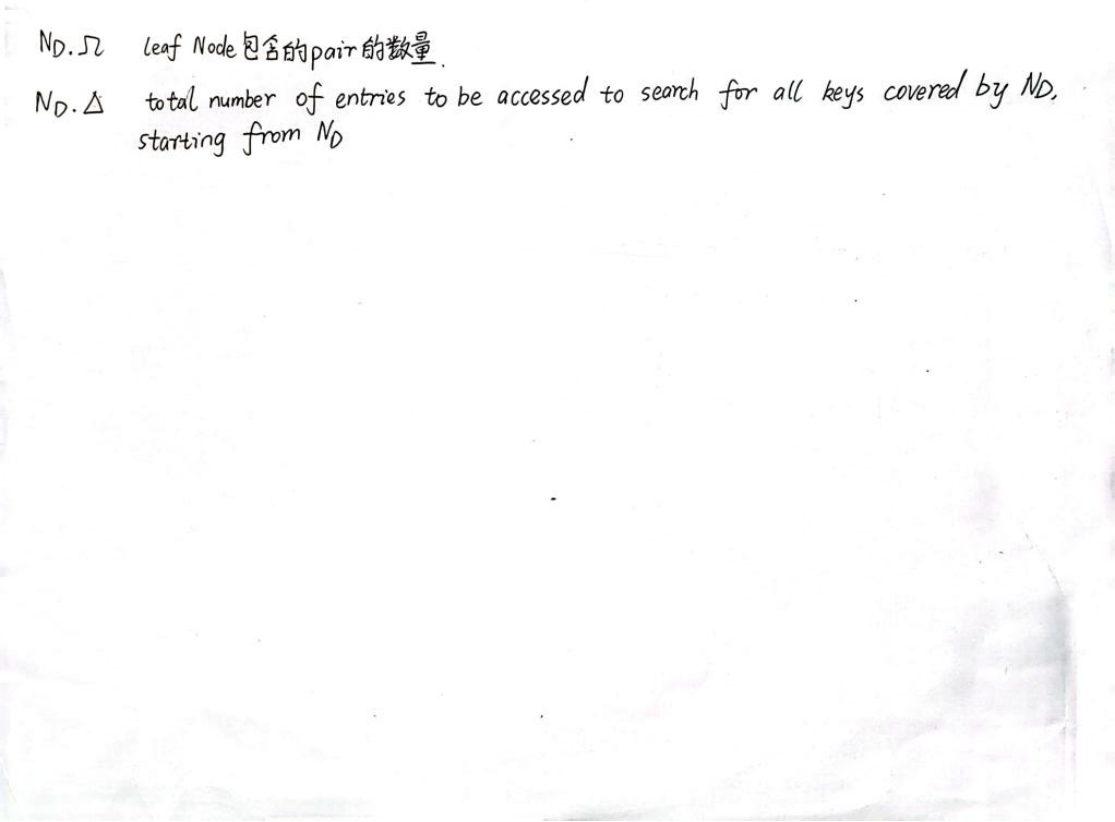 N_D.Ω leaf Node包含的pair的数量.
N_D.Δ total number of entries to be accessed to search for all keys covered by N_D,
starting from N_D